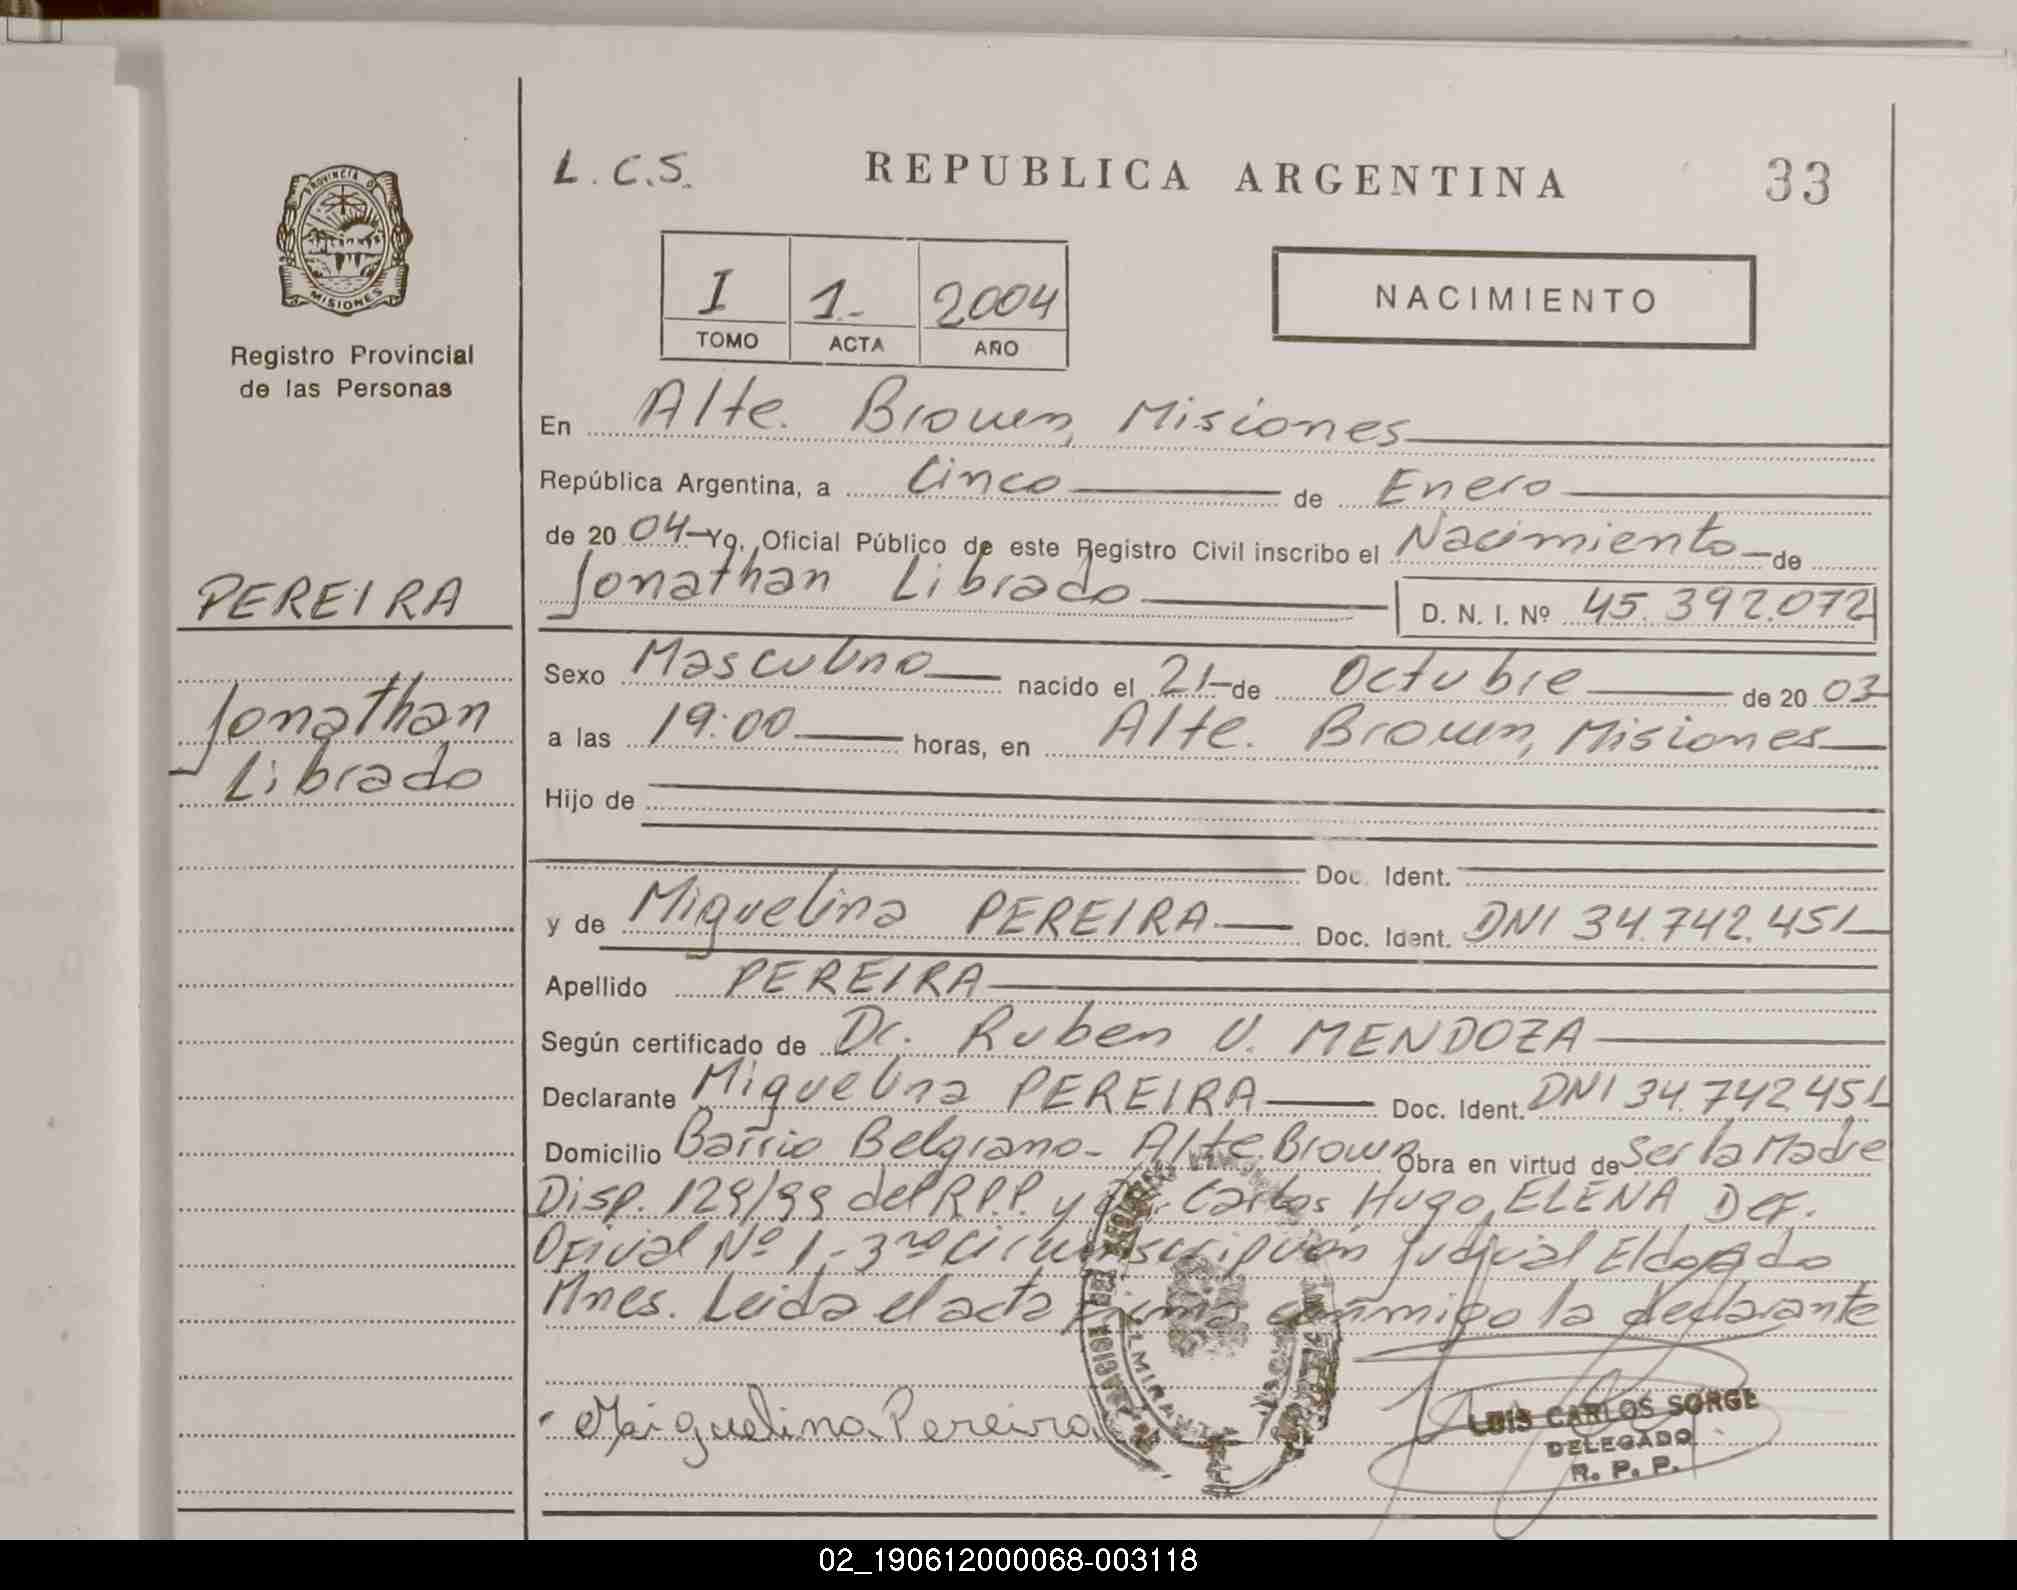 L.C.S. REPUBLICA ARGENTINA 33
PROVINCIA DE MISIONES
Registro Provincial
de las Personas
I 1.- 2004
TOMO ACTA AÑO
NACIMIENTO
En Alte. Brown, Misiones
República Argentina, a Cinco de Enero
de 20 04 Yo, Oficial Público de este Registro Civil inscribo el Nacimiento de
Jonathan Librado D. N. I. Nº 45.392.072
PEREIRA
Jonathan
Librado
Sexo Masculino nacido el 21 de Octubre de 20 03
a las 19:00 horas, en Alte. Brown, Misiones
Hijo de
Doc. Ident.
y de Miguelina PEREIRA Doc. Ident. DNI 34.742.451
Apellido PEREIRA
Según certificado de Dr. Ruben V. MENDOZA
Declarante Miguelina PEREIRA Doc. Ident. DNI 34.742.451
Domicilio Barrio Belgrano - Alte. Brown Obra en virtud de Ser la Madre
Disp. 129/99 del R.P.P. y Dr. Carlos Hugo ELENA Def.
Oficial Nº 1 - 3ra Circunscripción Judicial Eldorado
Mnes. Leida el acta firma conmigo la declarante
Miguelina Pereira
LUIS CARLOS SORGE
DELEGADO
R. P. P.
02_190612000068-003118